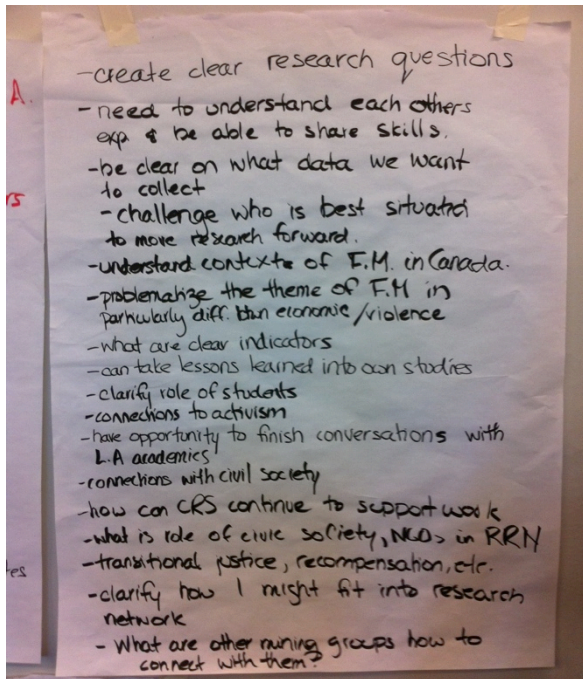 A.
-create clear research questions
-need to understand each others
exp & be able to share skills.
-be clear on what data we want
to collect
-challenge who is best situated
to move research forward.
-understand contexts of F.M. in Canada.
-problematize the theme of F.M in
particularly diff. btwn economic/violence
-what are clear indicators
-can take lessons learned into own studies
-clarify role of students
-connections to activism
-have opportunity to finish conversations with
L.A academics
-connections with civil society
-how can CRS continue to support work
-what is role of civic society, NGOs in RRN
-transitional justice, recompensation, etc.
-clarify how I might fit into research
network
- What are other mining groups how to
connect with them?